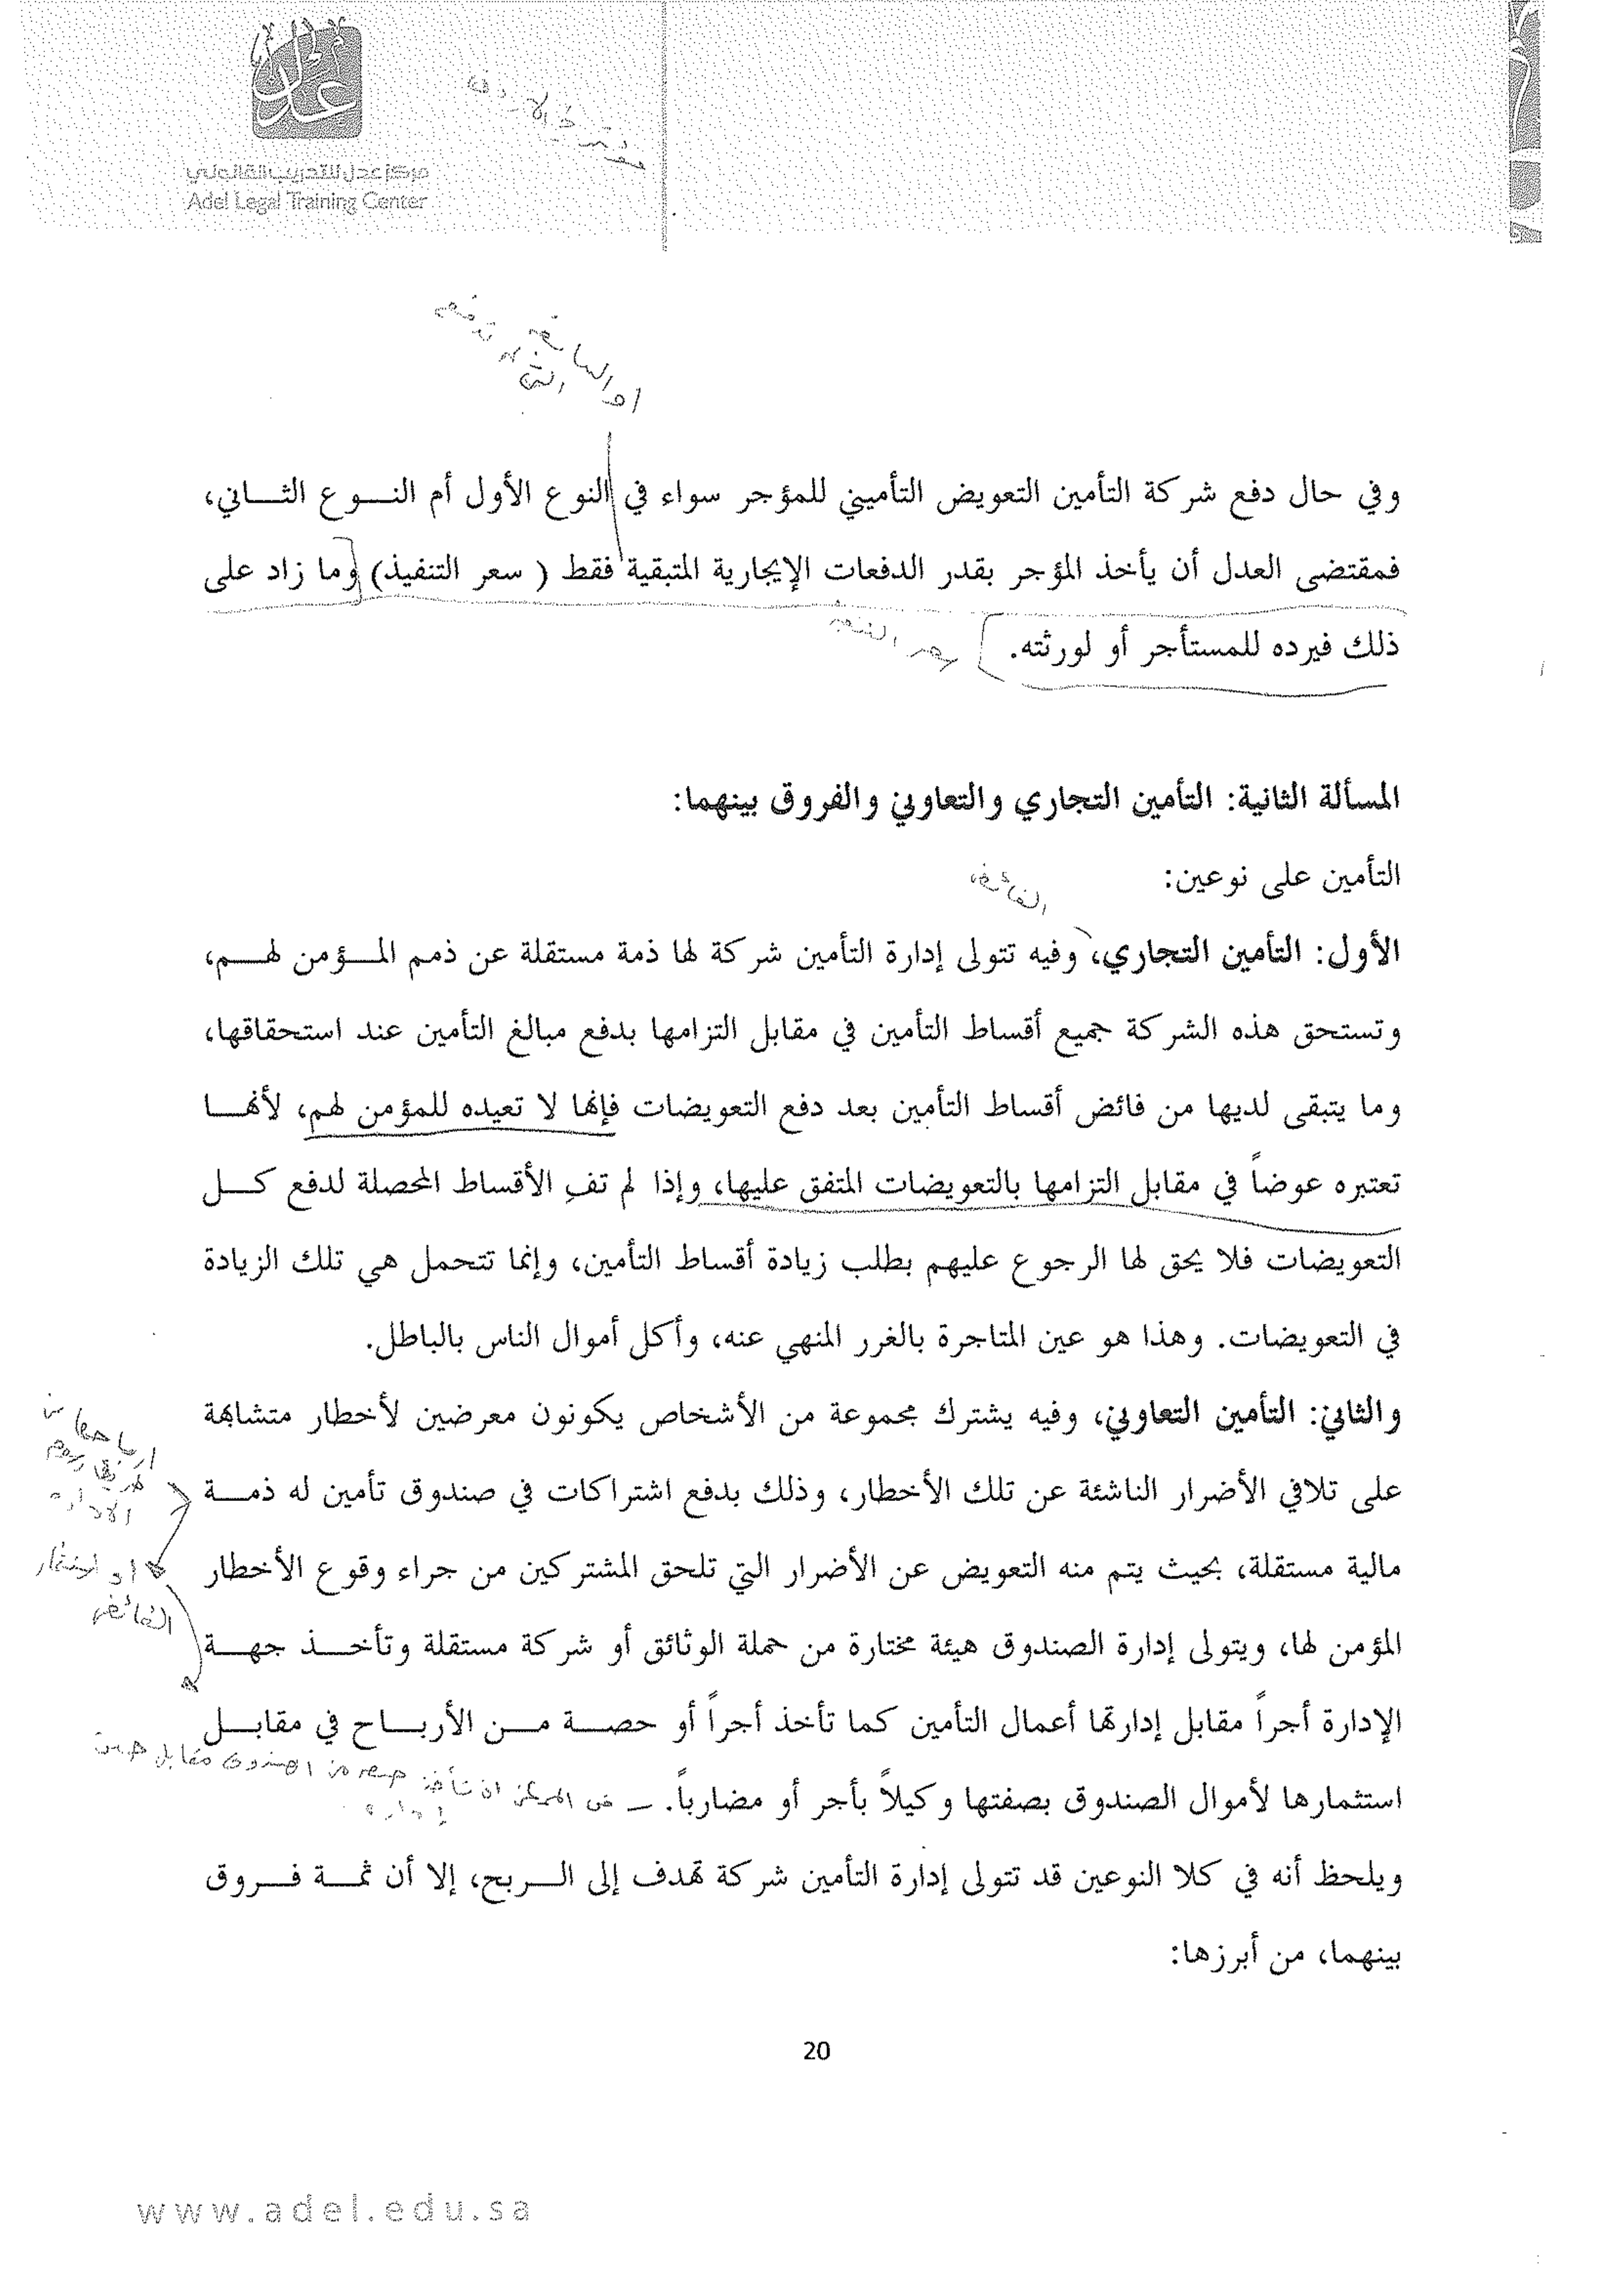 مركز عدل للتدريب القانوني
Adel Legal Training Center
وفي حال دفع شركة التأمين التعويض التأميني للمؤجر سواء في النوع الأول أم النـــوع الثـــاني،
فمقتضى العدل أن يأخذ المؤجر بقدر الدفعات الإيجارية المتبقية فقط ( سعر التنفيذ) وما زاد على
ذلك فيرده للمستأجر أو لورثته.
المسألة الثانية: التأمين التجاري والتعاوني والفروق بينهما:
التأمين على نوعين:
الأول: التأمين التجاري، وفيه تتولى إدارة التأمين شركة لها ذمة مستقلة عن ذمم المـــؤمن لهـــم،
وتستحق هذه الشركة جميع أقساط التأمين في مقابل التزامها بدفع مبالغ التأمين عند استحقاقها،
وما يتبقى لديها من فائض أقساط التأمين بعد دفع التعويضات فإنها لا تعيده للمؤمن لهم، لأنهـــا
تعتبره عوضاً في مقابل التزامها بالتعويضات المتفق عليها، وإذا لم تفِ الأقساط المحصلة لدفع كـــل
التعويضات فلا يحق لها الرجوع عليهم بطلب زيادة أقساط التأمين، وإنما تتحمل هي تلك الزيادة
في التعويضات. وهذا هو عين المتاجرة بالغرر المنهي عنه، وأكل أموال الناس بالباطل.
والثاني: التأمين التعاوني، وفيه يشترك مجموعة من الأشخاص يكونون معرضين لأخطار متشابهة
على تلافي الأضرار الناشئة عن تلك الأخطار، وذلك بدفع اشتراكات في صندوق تأمين له ذمـــة
مالية مستقلة، بحيث يتم منه التعويض عن الأضرار التي تلحق المشتركين من جراء وقوع الأخطار
المؤمن لها، ويتولى إدارة الصندوق هيئة مختارة من حملة الوثائق أو شركة مستقلة وتأخـــذ جهـــة
الإدارة أجراً مقابل إدارتها أعمال التأمين كما تأخذ أجراً أو حصـــة مـــن الأربـــاح في مقابـــل
استثمارها لأموال الصندوق بصفتها وكيلاً بأجر أو مضارباً.
ويلحظ أنه في كلا النوعين قد تتولى إدارة التأمين شركة تهدف إلى الـــربح، إلا أن ثمـــة فـــروق
بينهما، من أبرزها:
20
www.adel.edu.sa